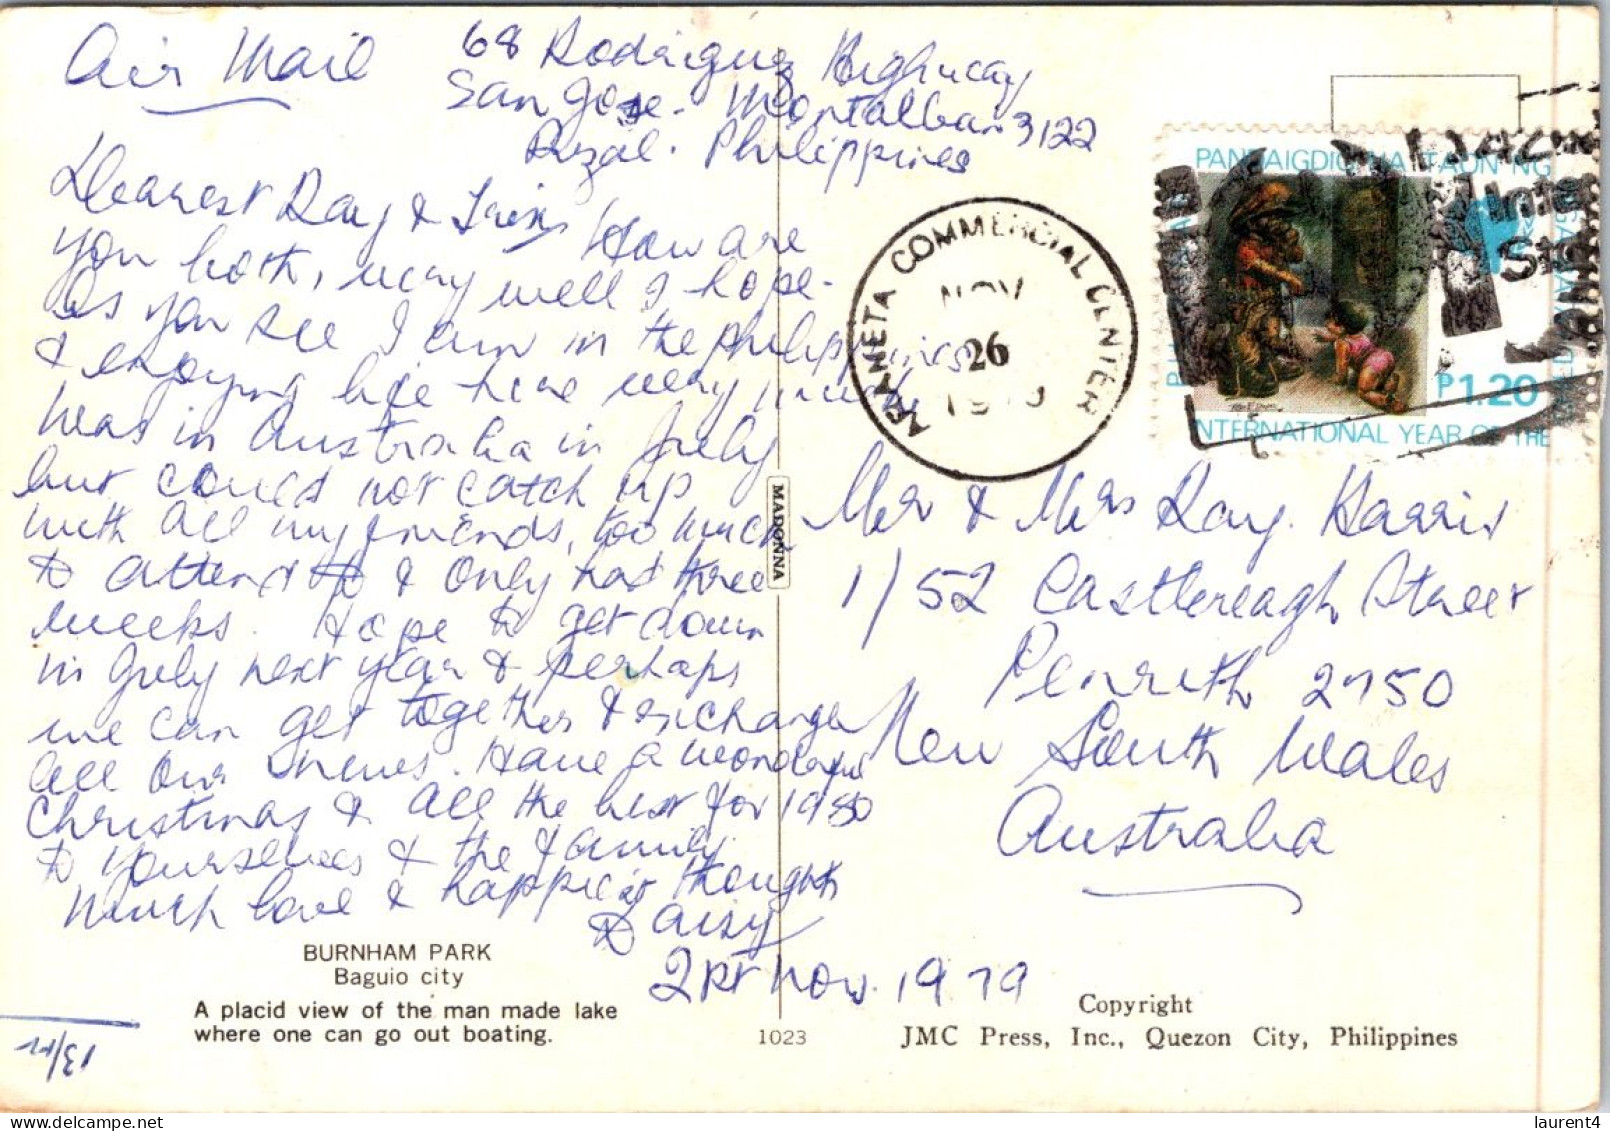 Air Mail
68 Rodriguez Highway
San Jose - Montalban 3122
Rizal. Philippines
Dearest Ray & Trixy How are
you both, very well I hope.
As you see I am in the Philippines
& enjoying life here very much
Was in Australia in July
but could not catch up
with all my friends, too much
to attend to & only had three
weeks. Hope to get down
in July next year & perhaps
we can get together & exchange
all our news. Have a wonderful
Christmas & all the best for 1980
to yourselves & the family.
Much love & happiest thoughts
Daisy
21st Nov. 1979
BURNHAM PARK
Baguio city
A placid view of the man made lake
where one can go out boating.
13/12
MADONNA
1023
ARANETA COMMERCIAL CENTER
NOV
26
1979
PANDAIGDIG NA TAON NG
₱1.20
INTERNATIONAL YEAR OF THE
Mr & Mrs Ray. Harris
1/52 Castlereagh Street
Penrith 2750
New South Wales
Australia
Copyright
JMC Press, Inc., Quezon City, Philippines
delcampe.net
laurent4